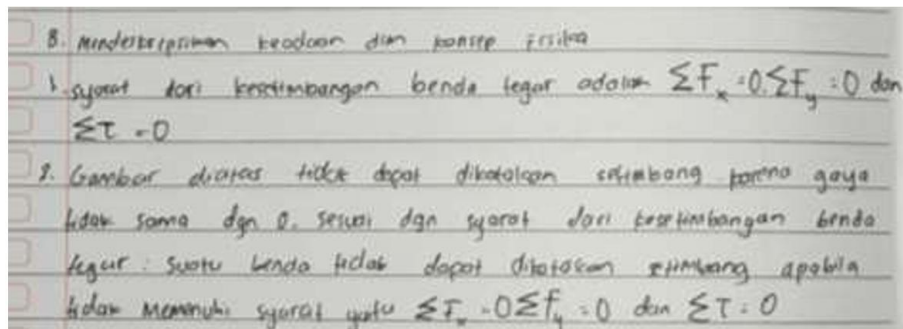 B. Mendeskripsikan keadaan dlm konsep fisika
1. syarat dari kesetimbangan benda tegar adalah ΣFx = 0, ΣFy = 0 dan
Στ = 0
2. Gambar diatas tidak dapat dikatakan setimbang karena gaya
tidak sama dgn 0. sesuai dgn syarat dari kesetimbangan benda
tegar : suatu benda tidak dapat dikatakan stimbang apabila
tidak memenuhi syarat yaitu ΣFx = 0 ΣFy = 0 dan Στ = 0